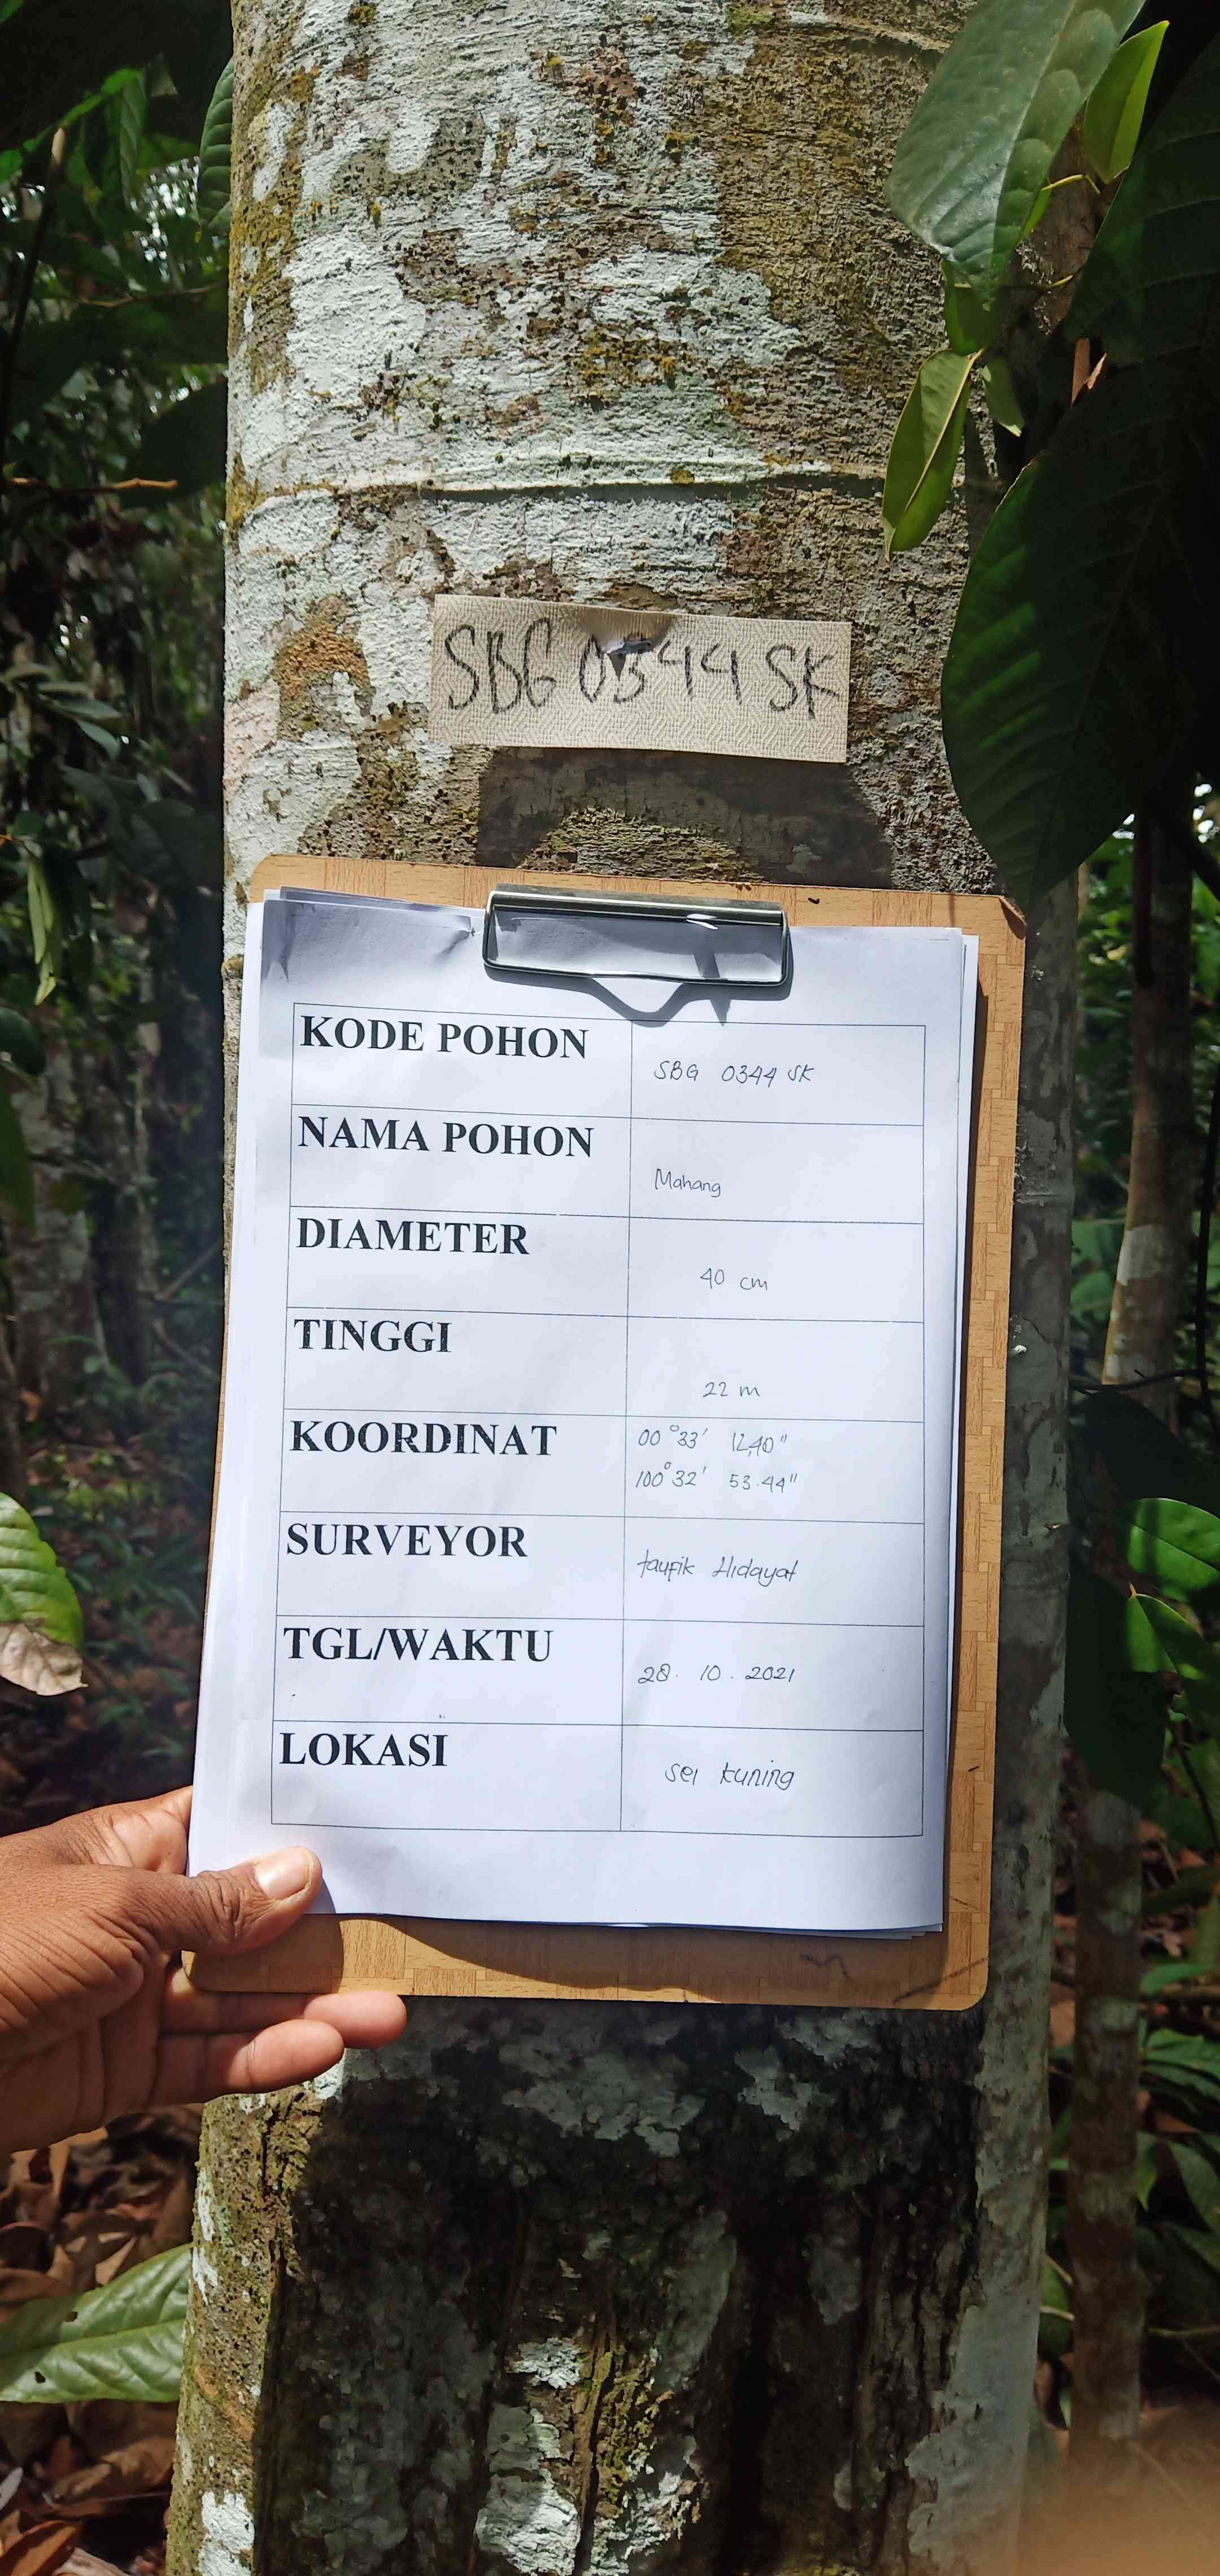 SBG 0344 SK
KODE POHON
SBG 0344 SK
NAMA POHON
Mahang
DIAMETER
40 cm
TINGGI
22 m
KOORDINAT
00°33' 12,40"
100°32' 53.44"
SURVEYOR
taufik Hidayat
TGL/WAKTU
28. 10. 2021
LOKASI
sei kuning